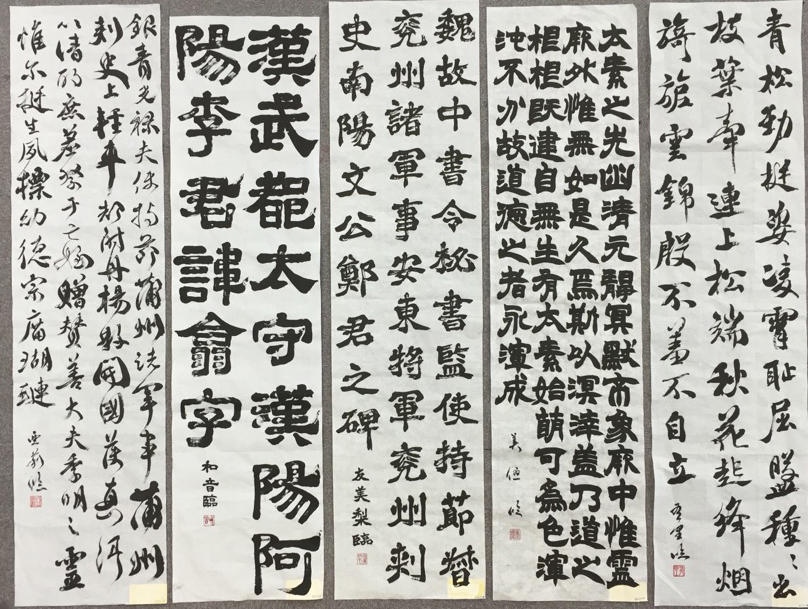 青松勁挺姿凌霄恥屈盤種種出
枝葉牽連上松端秋花起絳烟
旖旎雲錦殷不羞不自立
太素之先幽清元靜冥默不象厥中惟靈
厥外惟無如是久焉斯以溟涬蓋乃道之
根根既建自無生有太素始萌可為色渾
沌不分故道德之者永渾成
美優臨
魏故中書令秘書監使持節督
兗州諸軍事安東將軍兗州刺
史南陽文公鄭君之碑
友美梨臨
漢武都太守漢陽阿
陽李君諱翕字
和音臨
銀青光祿夫使持節蒲州諸軍事蒲州
刺史上輕車都尉丹楊縣開國侯真卿
以清酌庶羞祭于亡姪贈贊善大夫季明之靈
惟爾挺生夙標幼德宗廟瑚璉